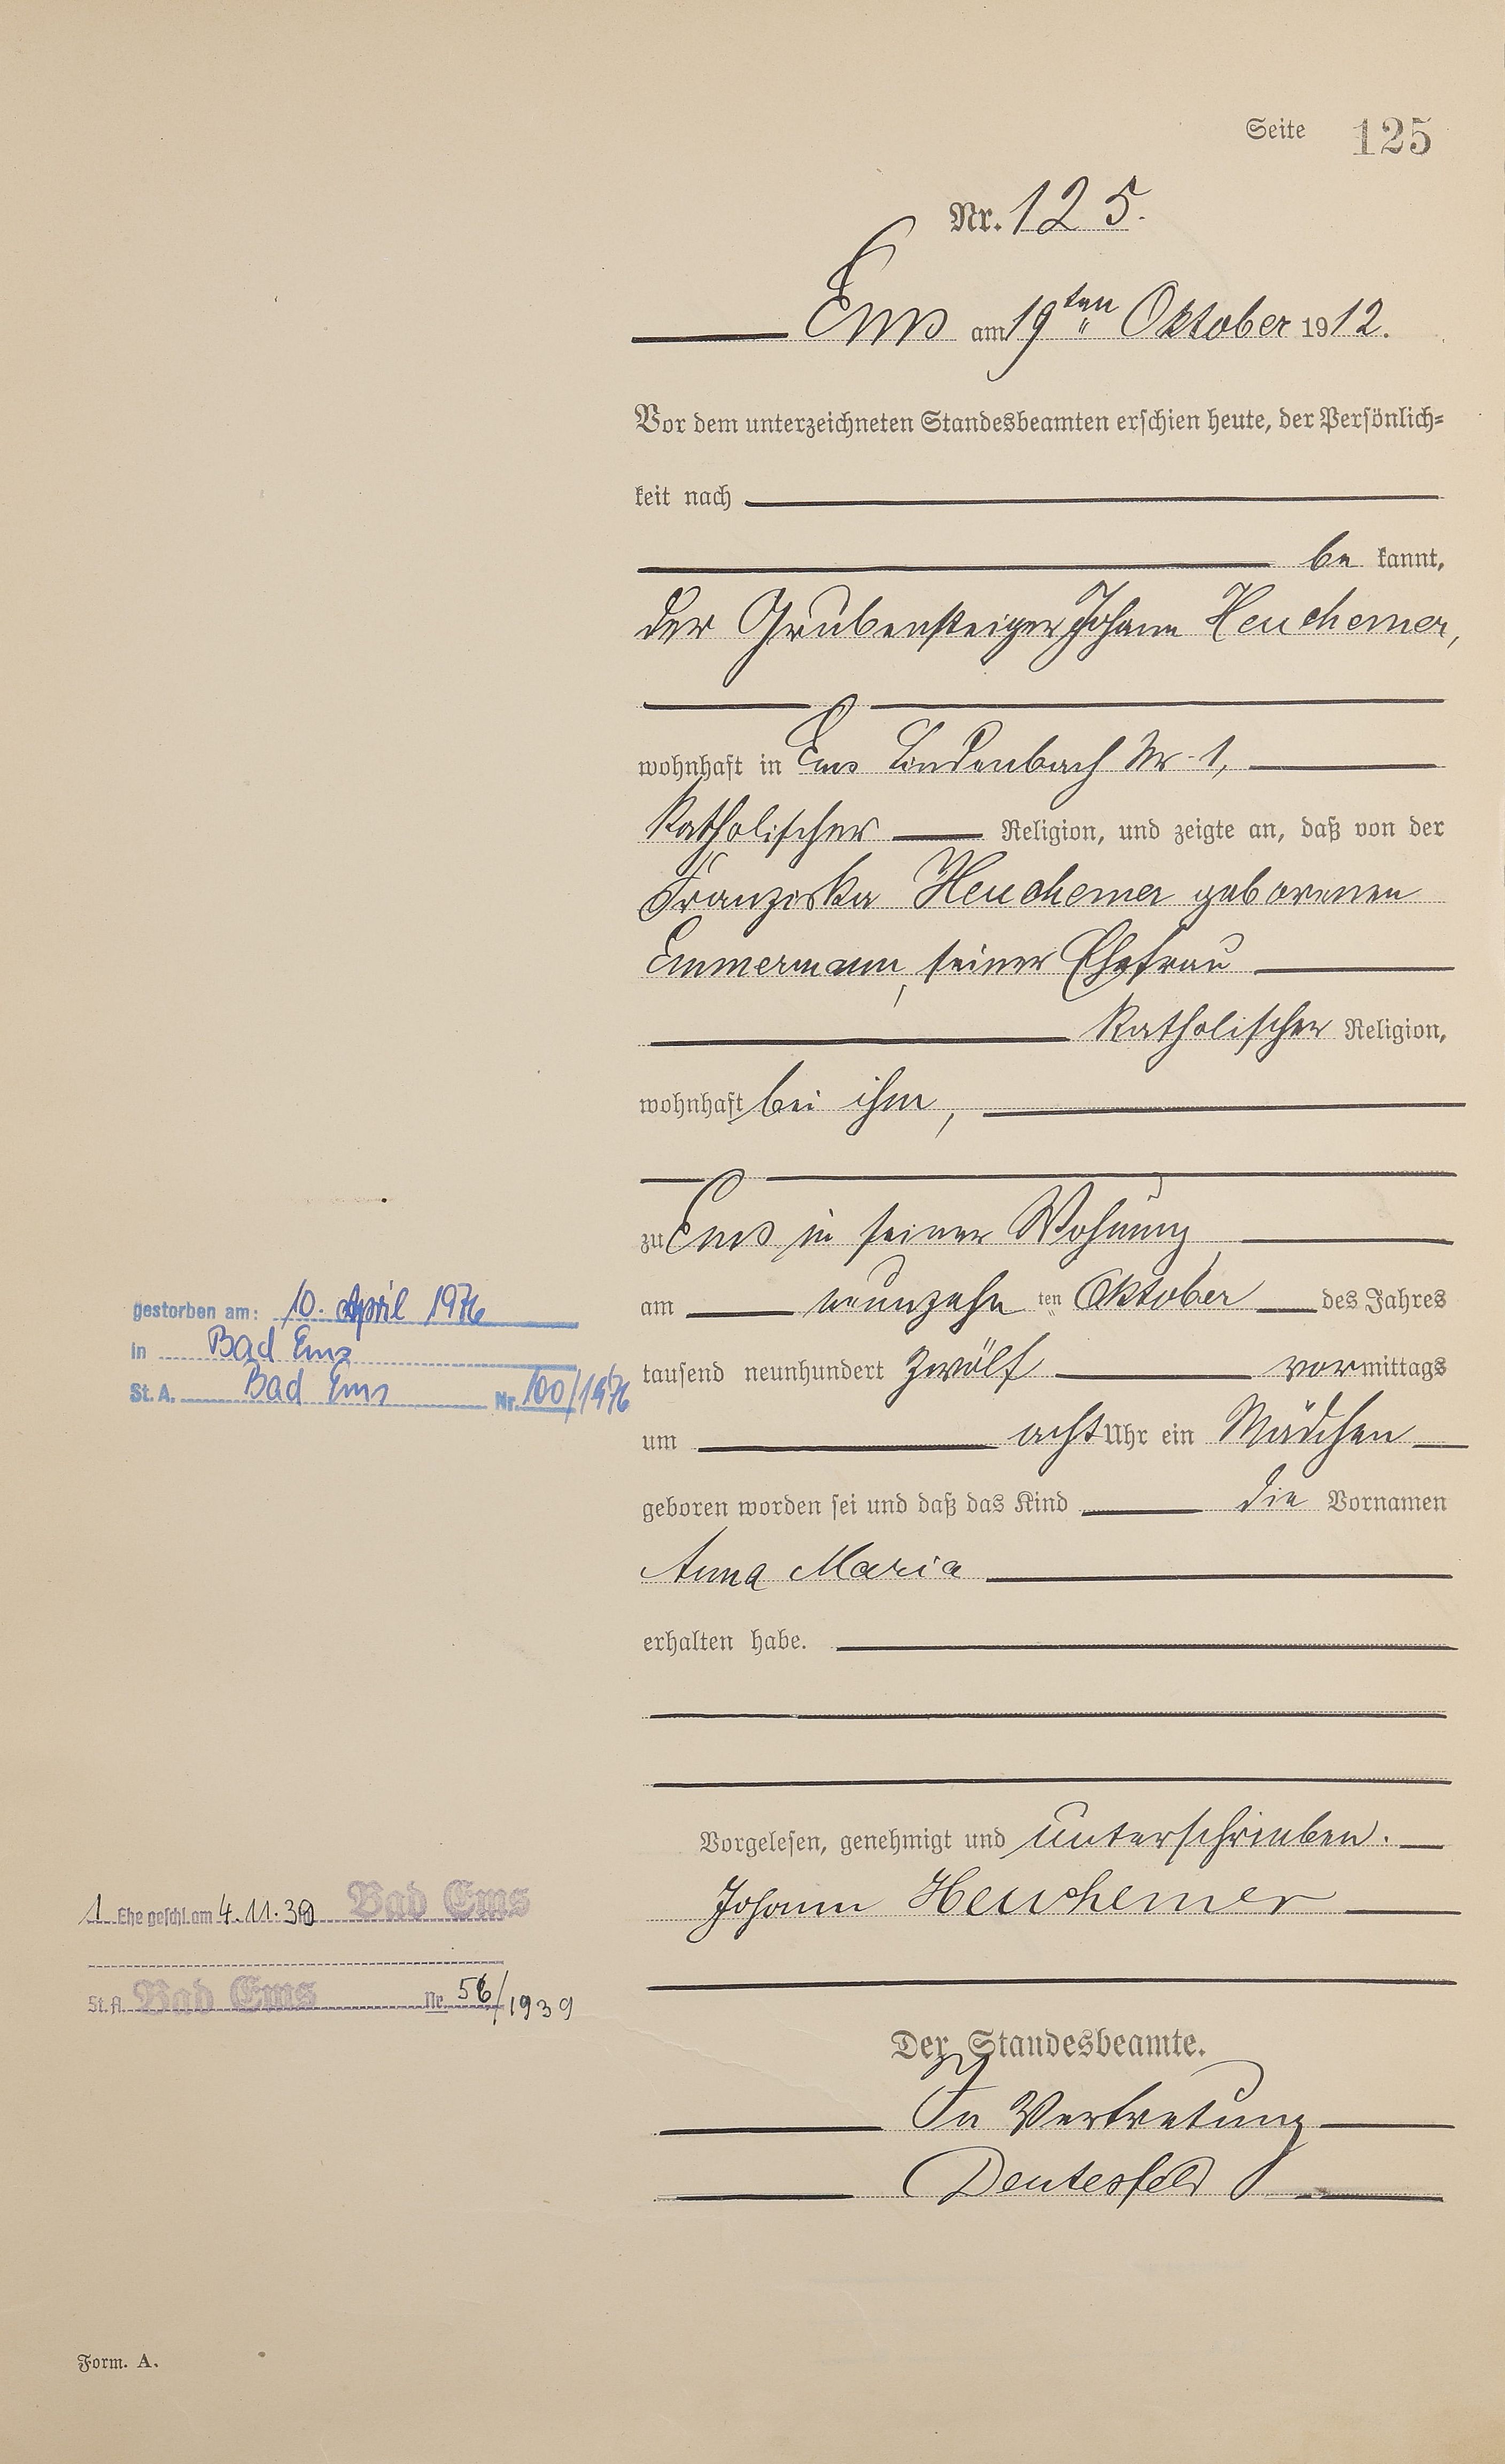 Seite 125
Nr. 125.
Ems am 19ten Oktober 1912.
Vor dem unterzeichneten Standesbeamten erschien heute, der Persönlich-
keit nach
be kannt,
der Grubensteiger Johann Heuchemer,
wohnhaft in Ems Lindenbach Nr. 1,
katholischer Religion, und zeigte an, daß von der
Franziska Heuchemer geborenen
Emmermann, seiner Ehefrau
katholischer Religion,
wohnhaft bei ihm,
zu Ems in seiner Wohnung
am neunzehn ten Oktober des Jahres
tausend neunhundert zwölf vormittags
um acht Uhr ein Mädchen
geboren worden sei und daß das Kind die Vornamen
Anna Maria
erhalten habe.
Vorgelesen, genehmigt und unterschrieben.
Johann Heuchemer
Der Standesbeamte.
In Vertretung
Deutesfeld
gestorben am: 10. April 1976
in Bad Ems
St. A. Bad Ems Nr. 100/1976
1 Ehe geschl. am 4.11.39 Bad Ems
St. A. Bad Ems Nr. /1939
Form. A.